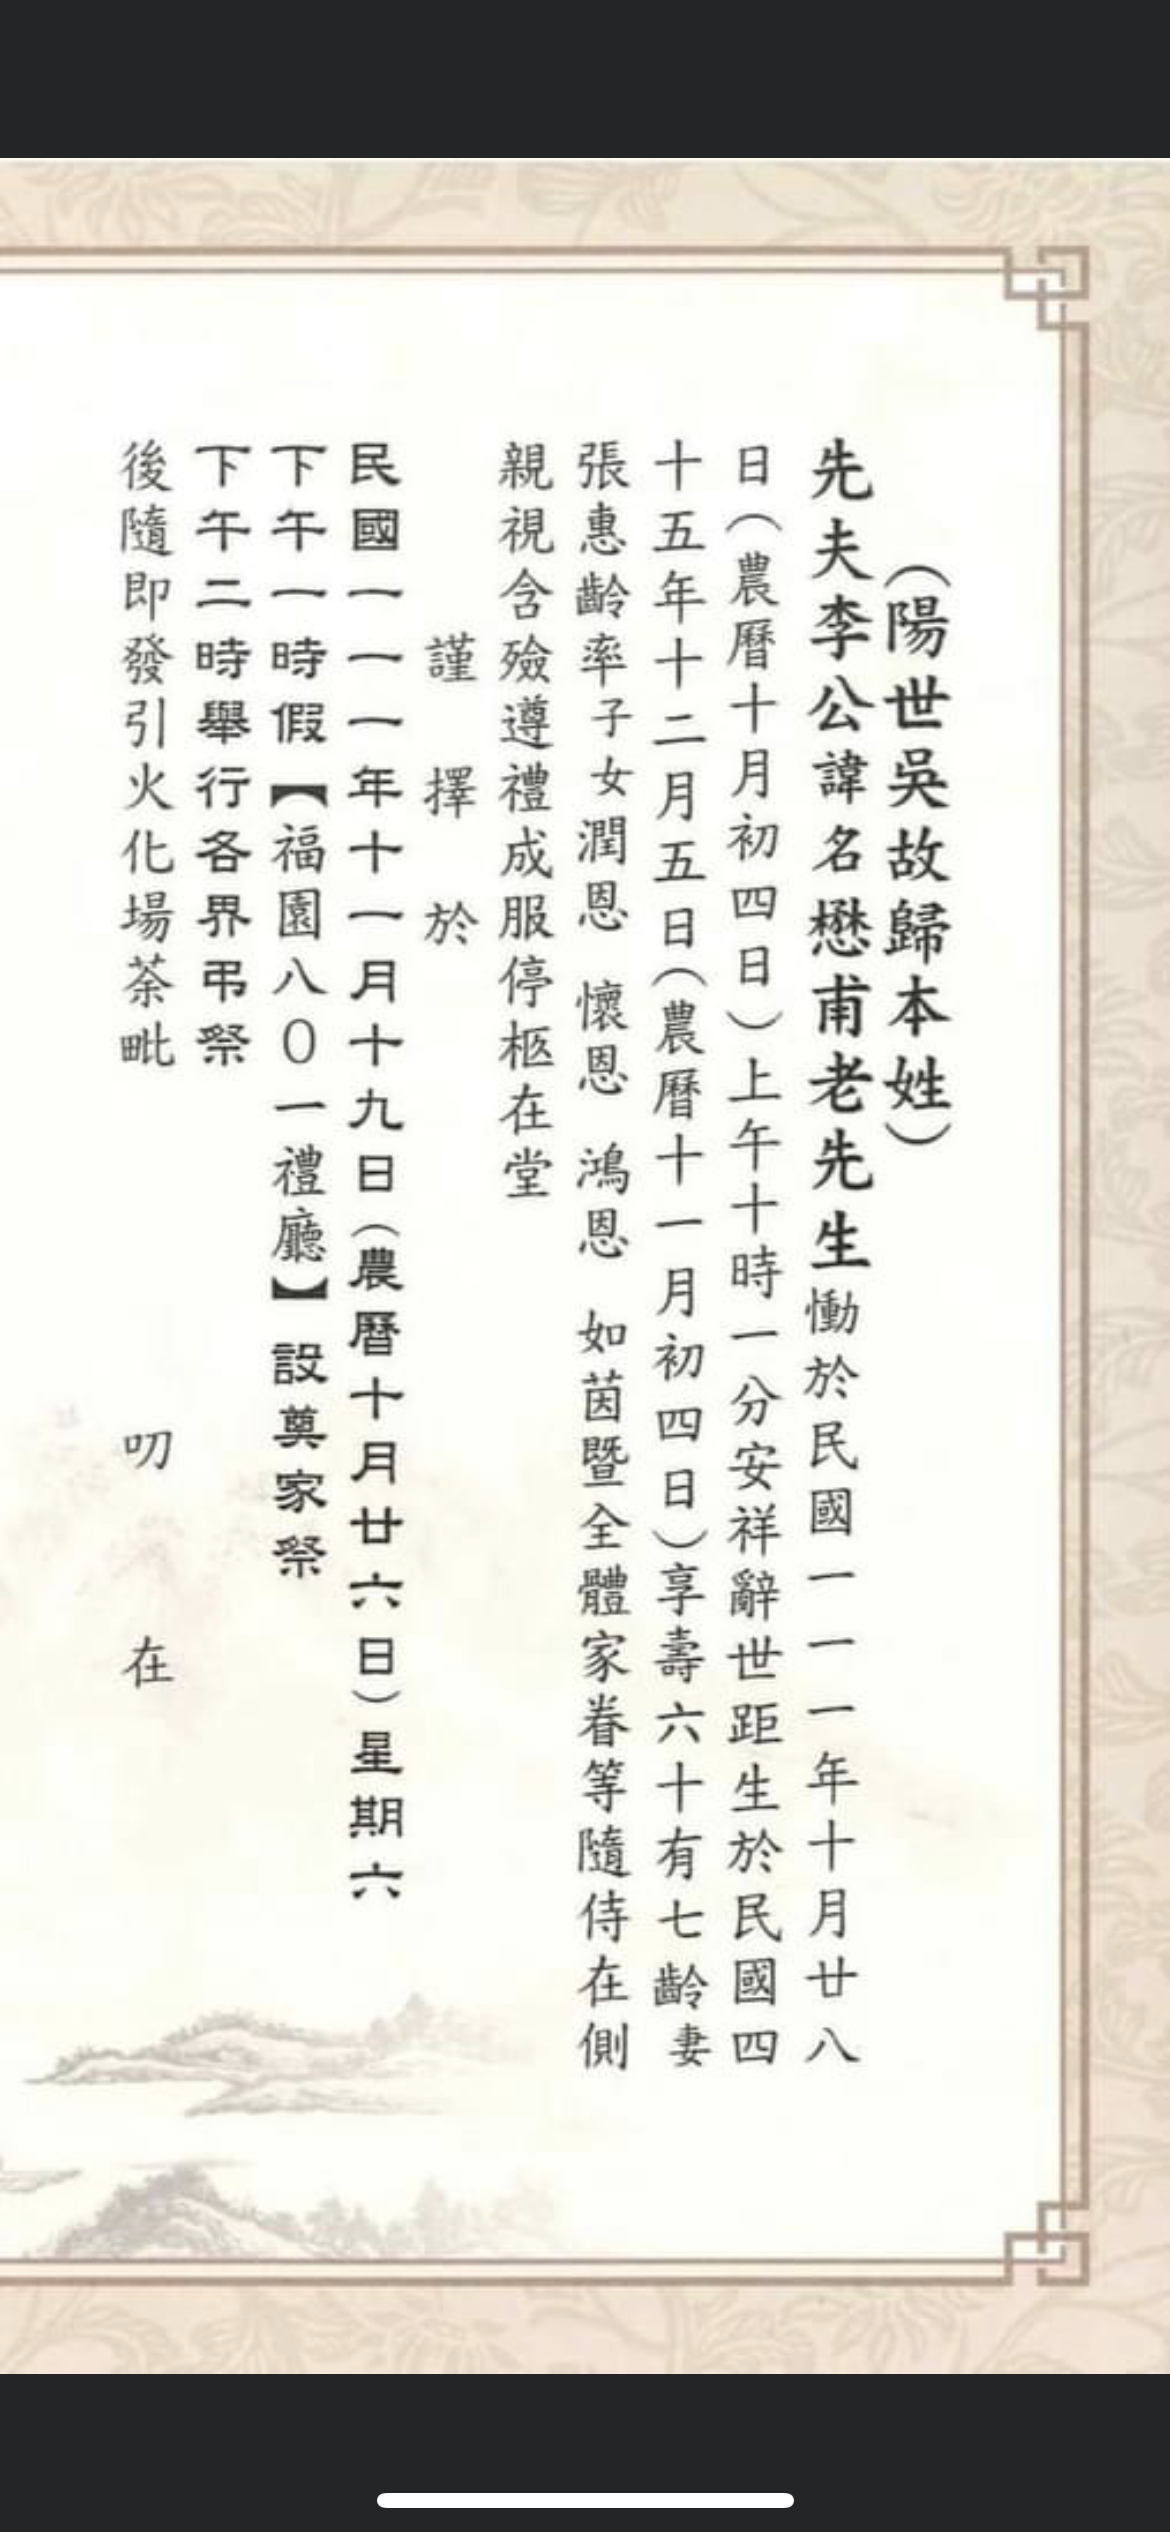 （陽世吳故歸本姓）
先夫李公諱名懋甫老先生慟於民國一一一年十月廿八
日（農曆十月初四日）上午十時一分安祥辭世距生於民國四
十五年十二月五日（農曆十一月初四日）享壽六十有七齡妻
張惠齡率子女潤恩 懷恩 鴻恩 如茵暨全體家眷等隨侍在側
親視含殮遵禮成服停柩在堂
謹擇於
民國一一一年十一月十九日（農曆十月廿六日）星期六
下午一時假【福園八０一禮廳】設奠家祭
下午二時舉行各界弔祭
後隨即發引火化場荼毗 叨在